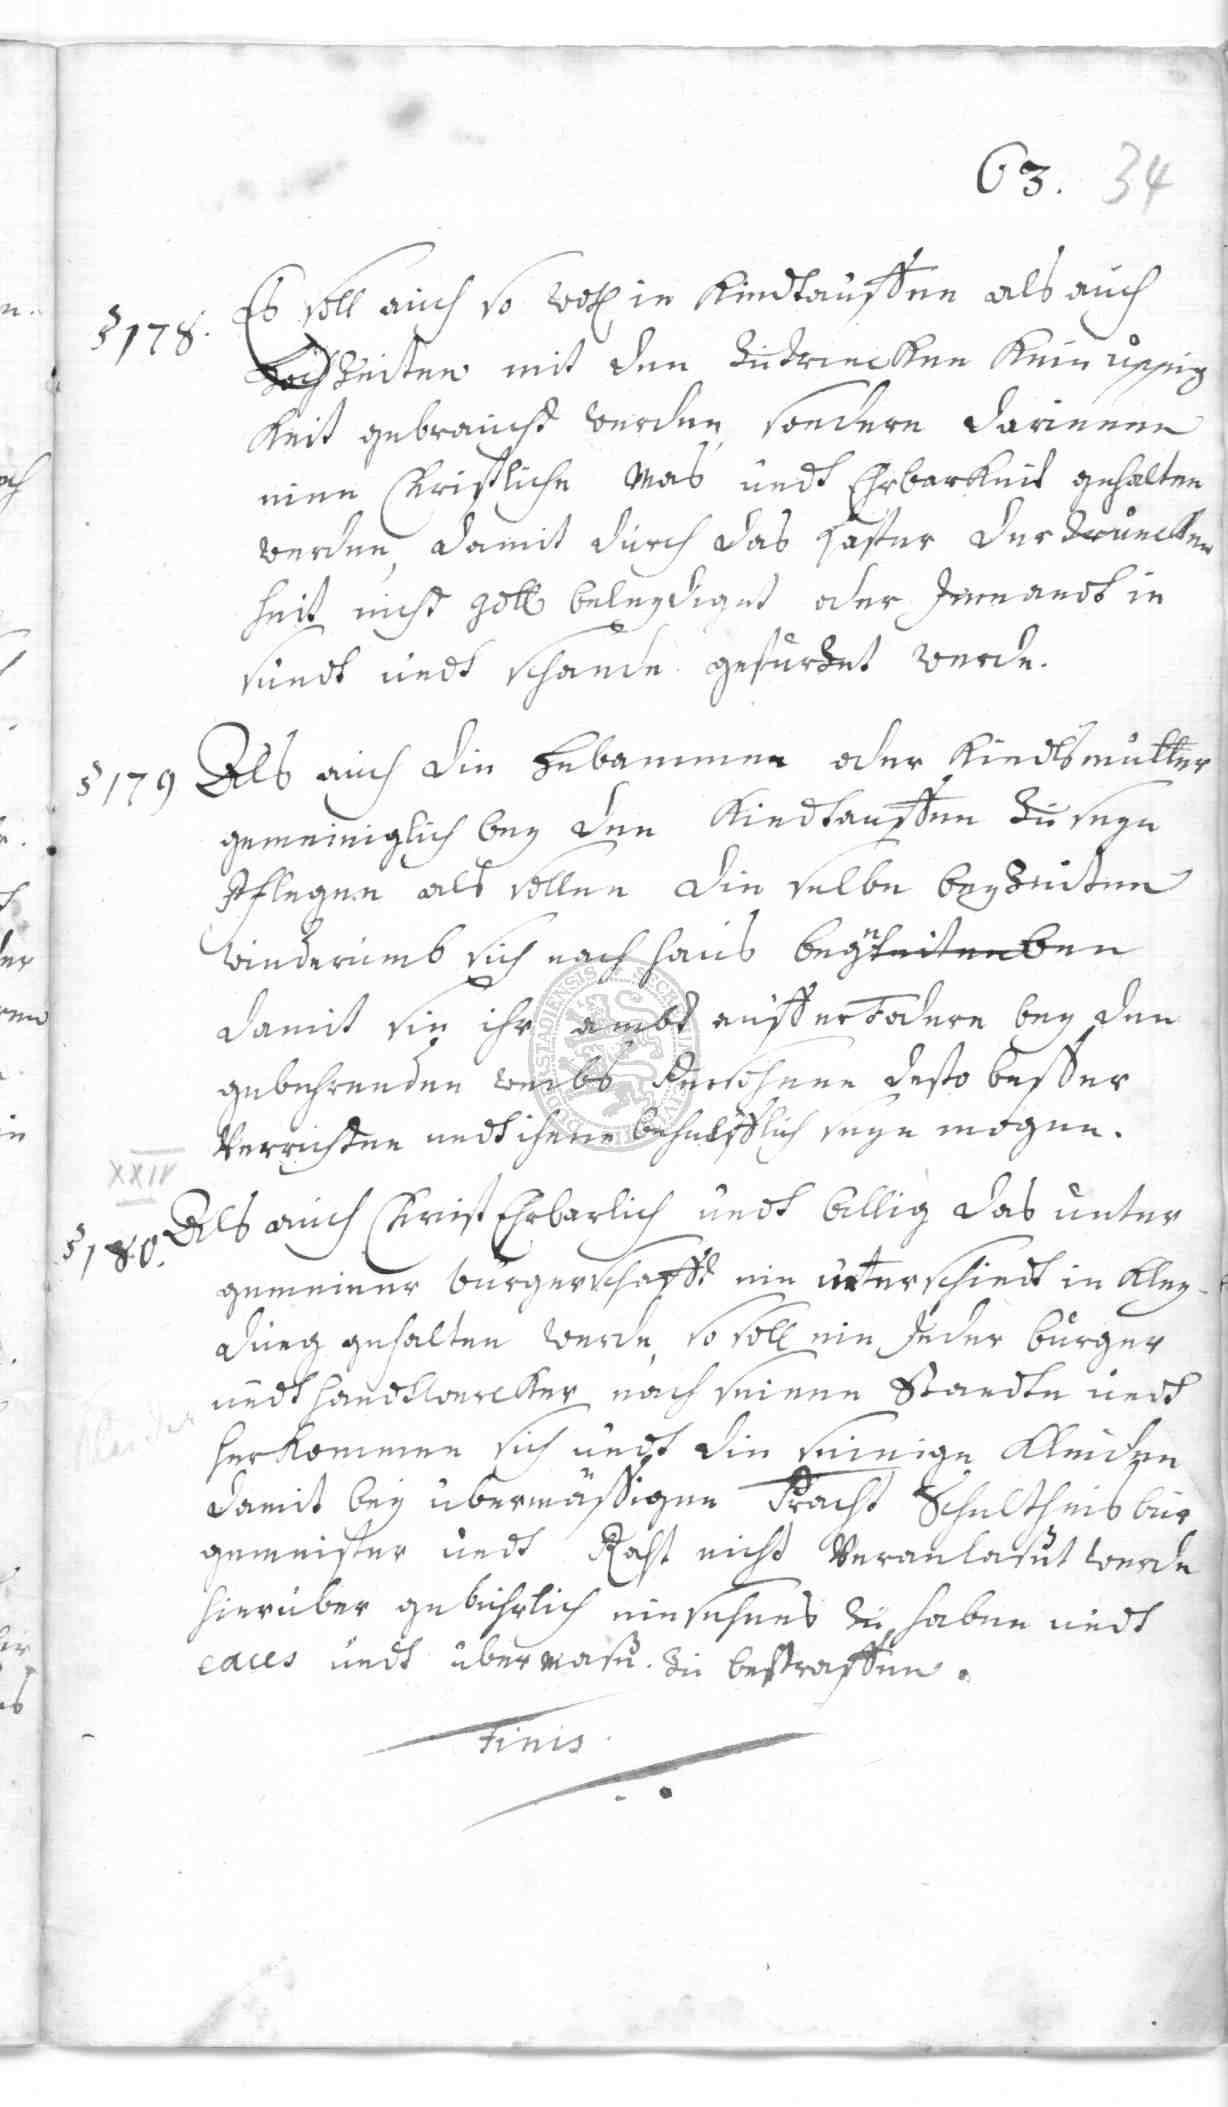 63. 34
§ 178. Es soll auch so woll in Kindtauffen als auch
Hochzeiten mit den Zudrincken kein üppig
keit gebraucht werden, sondern darinnen
eine Christliche Mas undt Ehrbarkeit gehalten
werden, damit durch das laster der drüncken
heit nicht Gott beleydiget oder Jemandt in
sündt undt schande gestürtzet werde.
§ 179 Als auch die Hebammen oder Kindtsmütter
gemeiniglich bey den Kindtauffen zu seyn
Pflegen als sollen die selbe bey Zeiten
wiederumb sich nach haus begeben
damit sie ihr ambt aufferfodern bey den
gebehrenden weibs Persohnen desto besser
Verrichten undt ihnen behülfflich seyn mogen.
XXIV
§ 180. Als auch Christ Ehrbarlich undt billig das unter
gemeiner bürgerschafft ein unterschiedt in Kley-
dung gehalten werde, so soll ein Jeder bürger
undt handtwercker nach seinen Standte undt
herkommen sich undt die seinige Kleiden
Kleider
damit bey übermässigen Pracht Schultheis bür
gemeister undt Raht nicht Veranlaset werde
hierüber gebührlich einsehens zu haben undt
undt übermase zu bestraffen.
Finis.
SECRET CIVIT